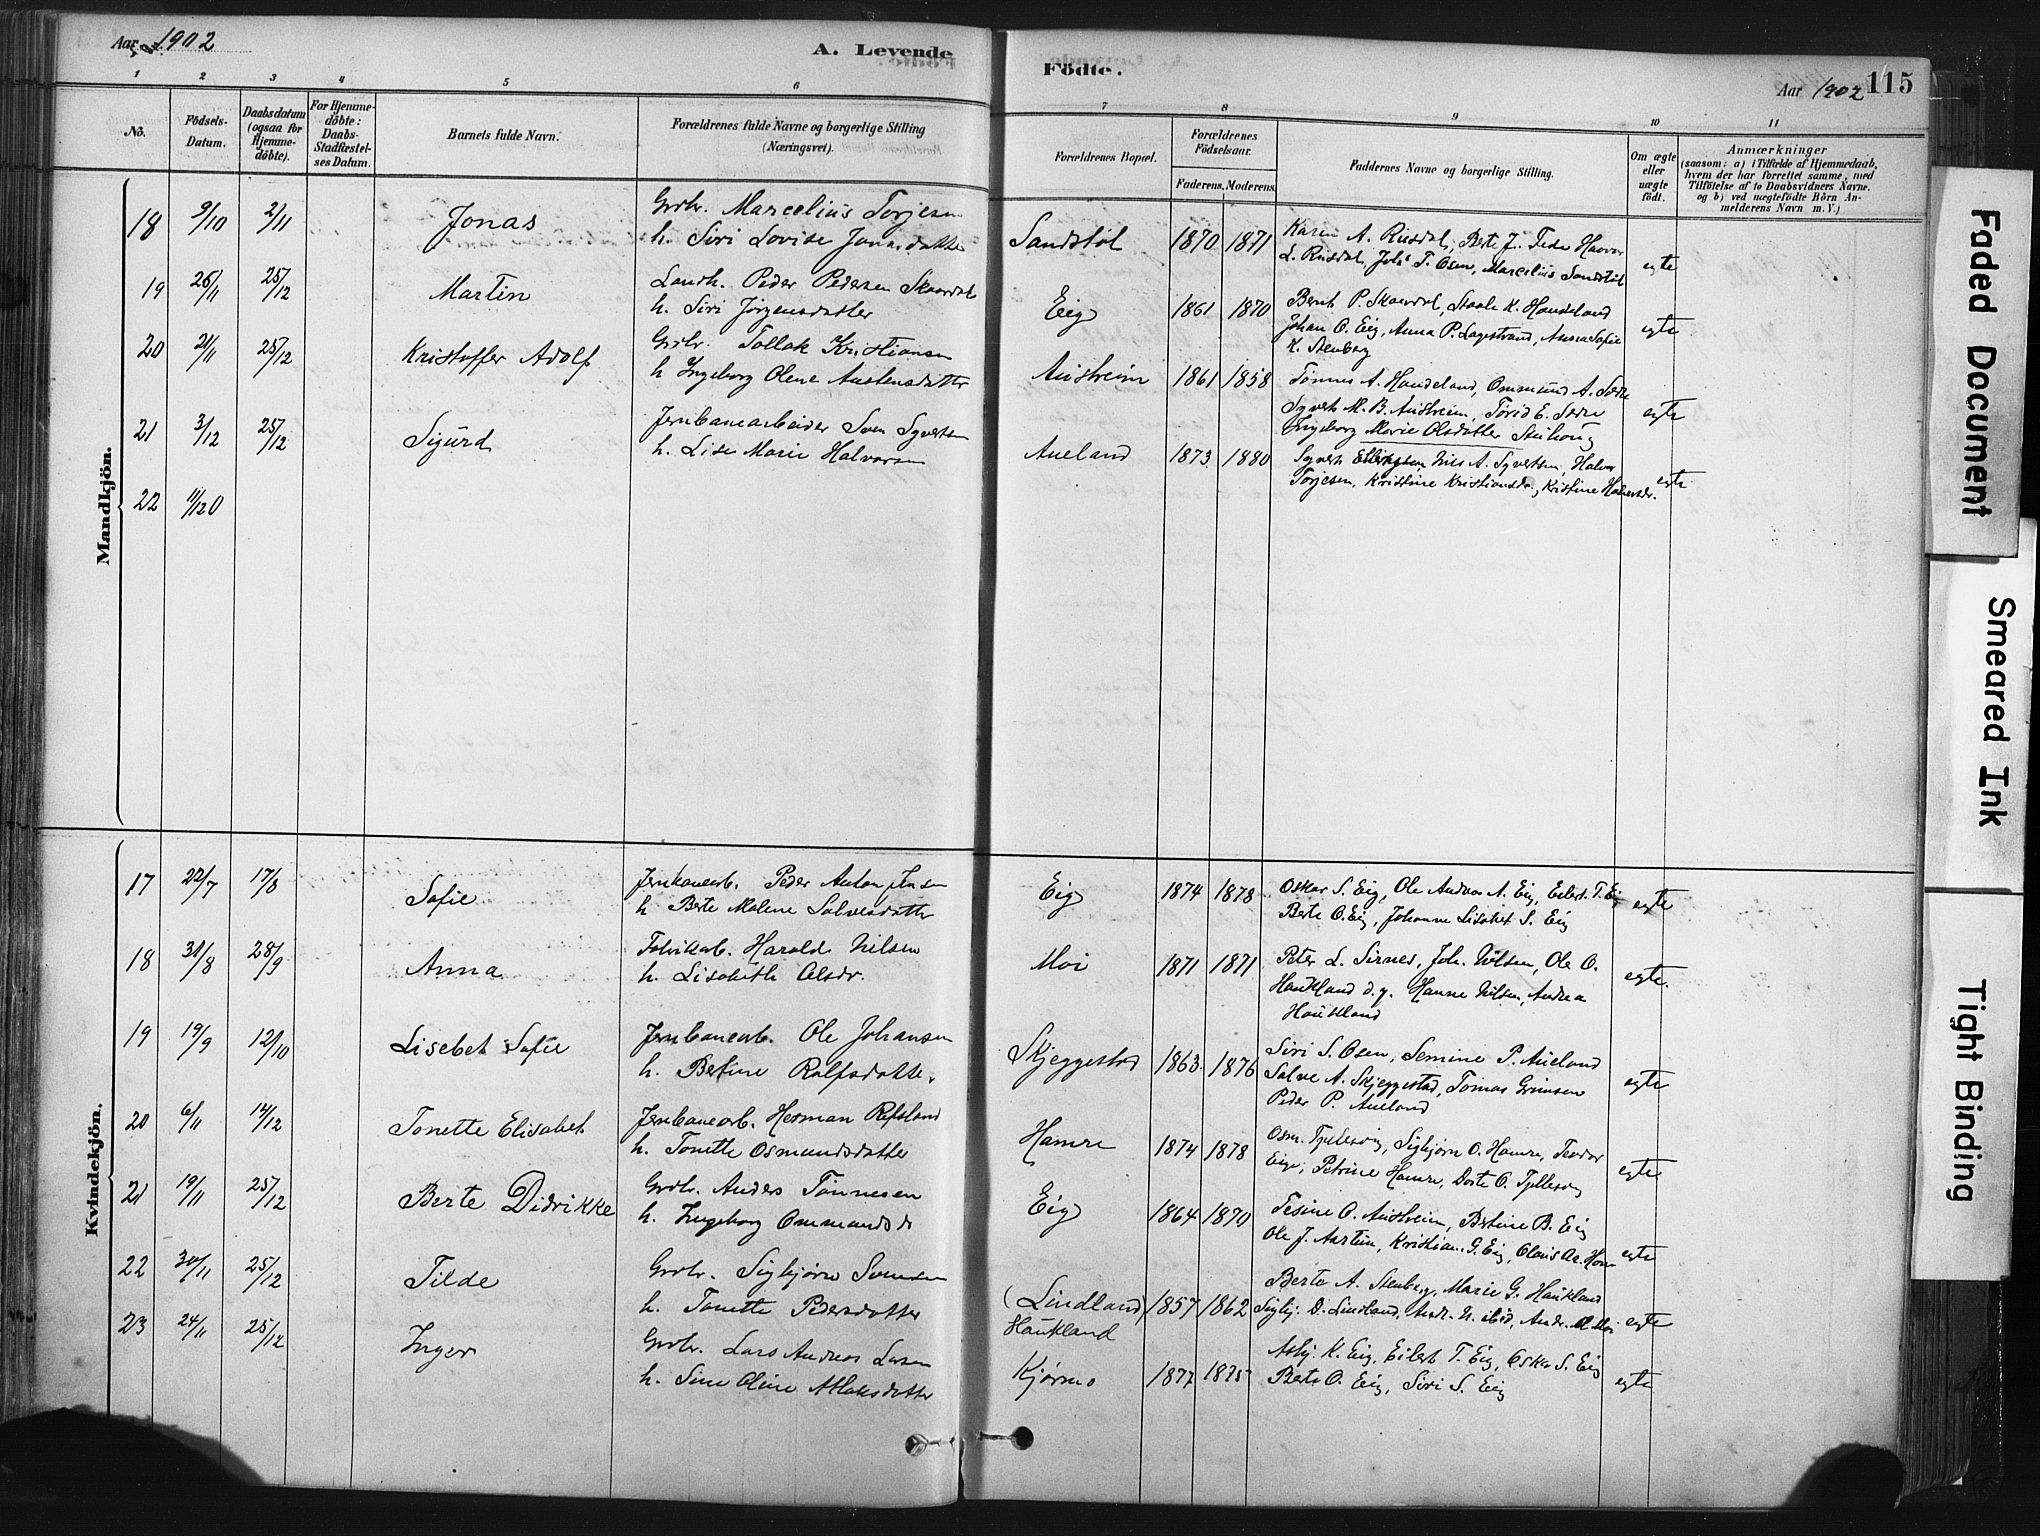 Aar 1902
A. Levende
Födte.
Aar 1902
115
1 2 3 4 5 6 7 8 9 10 11
No.
Födsels-Datum.
Daabsdatum (ogsaa for Hjemme-döbte).
For Hjemme-döbte: Daabs-Stadfæstel-ses Datum.
Barnets fulde Navn.
Forældrenes fulde Navne og borgerlige Stilling (Næringsvei).
Forældrenes Bopæl.
Forældrenes Födselsaar.
Faderens. Moderens.
Faddernes Navne og borgerlige Stilling.
Om ægte eller uægte födt.
Anmærkninger
(saasom: a) i Tilfælde af Hjemmedaab,
hvem der har forrettet samme, med
Tilföielse af to Daabsvidners Navne.
og b) ved uægtefödte Börn An-
melderens Navn m. V.)
Mandkjön.
18 9/10 2/11 Jonas Grdbr. Marcelius Torjesen
h. Siri Lovise Jonasdatter
Sandstøl 1870 1871 Karen A. Risdal, Berte J. Fede Havor
L. Risdal, Johs T. Osen, Marcelius Sandstøl egte
19 26/11 25/12 Martin Landh. Peder Pedersen Skaardal
h. Siri Jörgensdatter
Eig 1861 1870 Bernt P. Skaardal, Staale K. Haukland
Johan O. Eig, Anna P. Lagestrand, Anna Sofie
K. Stenberg egte
20 21/11 25/12 Kristoffer Adolf Grdbr. Tollak Kristiansen
h Ingeborg Olene Austensdatter
Austreim 1861 1858 Tönnes A. Haukeland, Ommund A. Sædre
Syvert M. B. Austreim, Torid E. Sædre
Ingeborg Marie Olsdatter egte
21 3/12 25/12 Sigurd Jernbanearbeider Sven Syvertsen
h. Lise Marie Halvorsen
Aueland 1873 1880 Syvert Ellingsen Nils A. Syvertsen, Halvor
Torjesen, Kristine Kristiansdr., Kristine Halvorsdr. egte
22 11/12 0
Kvindekjön.
17 22/7 17/8 Sofie Jernbanearb. Peder Anton Jensen
h Berte Malene Salvesdatter
Eig 1874 1878 Oskar S. Eig, Ole Andreas A. Eig, Eilert T. Eig
Berte O. Eig, Johanne Lisabet S. Eig egte
18 31/8 28/9 Anna Fabrikarb. Harald Nilsen
h. Lisabeth Olsdr.
Moi 1871 1871 Peter L. Sirnes, Joh. Nilsen, Ole O.
Haukland d. y. Hanne Nilsen, Andrea
Haukland egte.
19 19/9 12/10 Lisebet Sofie Jernbanearb. Ole Johansen
h. Bertine Rolfsdatter
Skjeggestad 1863 1876 Siri S. Osen, Semine P. Aueland
Salve A. Skjeggestad, Tomas Grimsen
Peder P. Aueland egte
20 6/11 14/12 Tonette Elisabet Jernbanearb. Herman Refsland
h. Tonette Osmundsdatter
Hamre 1874 1878 Osm. Tjellesvig, Sigbjørn O. Hamre, Teodor
Eige, Petrine Hamre, Dorte O. Tjellesvig egte
21 19/11 25/12 Berte Didrikke Grdbr. Anders Tönnesen
h. Ingeborg Ommundsdr
Eig 1864 1870 Tesine O. Austreim, Bertine B. Eig
Ole J. Aartun, Kristian G. Eig egte
22 30/11 25/12 Tilde Grdbr. Sigbjørn Svendsen
h. Tonette Pedersdatter
(Lindland) Haukland 1857 1862 Berte A. Stenberg, Marie G. Haukland
Sigbj. D. Lindland, Andr. N. ibid, Andr. egte
23 24/11 25/12 Inger Grdbr. Lars Andreas Larsen
h. Sine Oline Atlaksdatter
Kjørmo 1877 1875 Asbj. K. Eig, Eilert T. Eig, Oskar S. Eig
Berte O. Eig, Siri S. Eig egte
Faded Document
Smeared Ink
Tight Binding